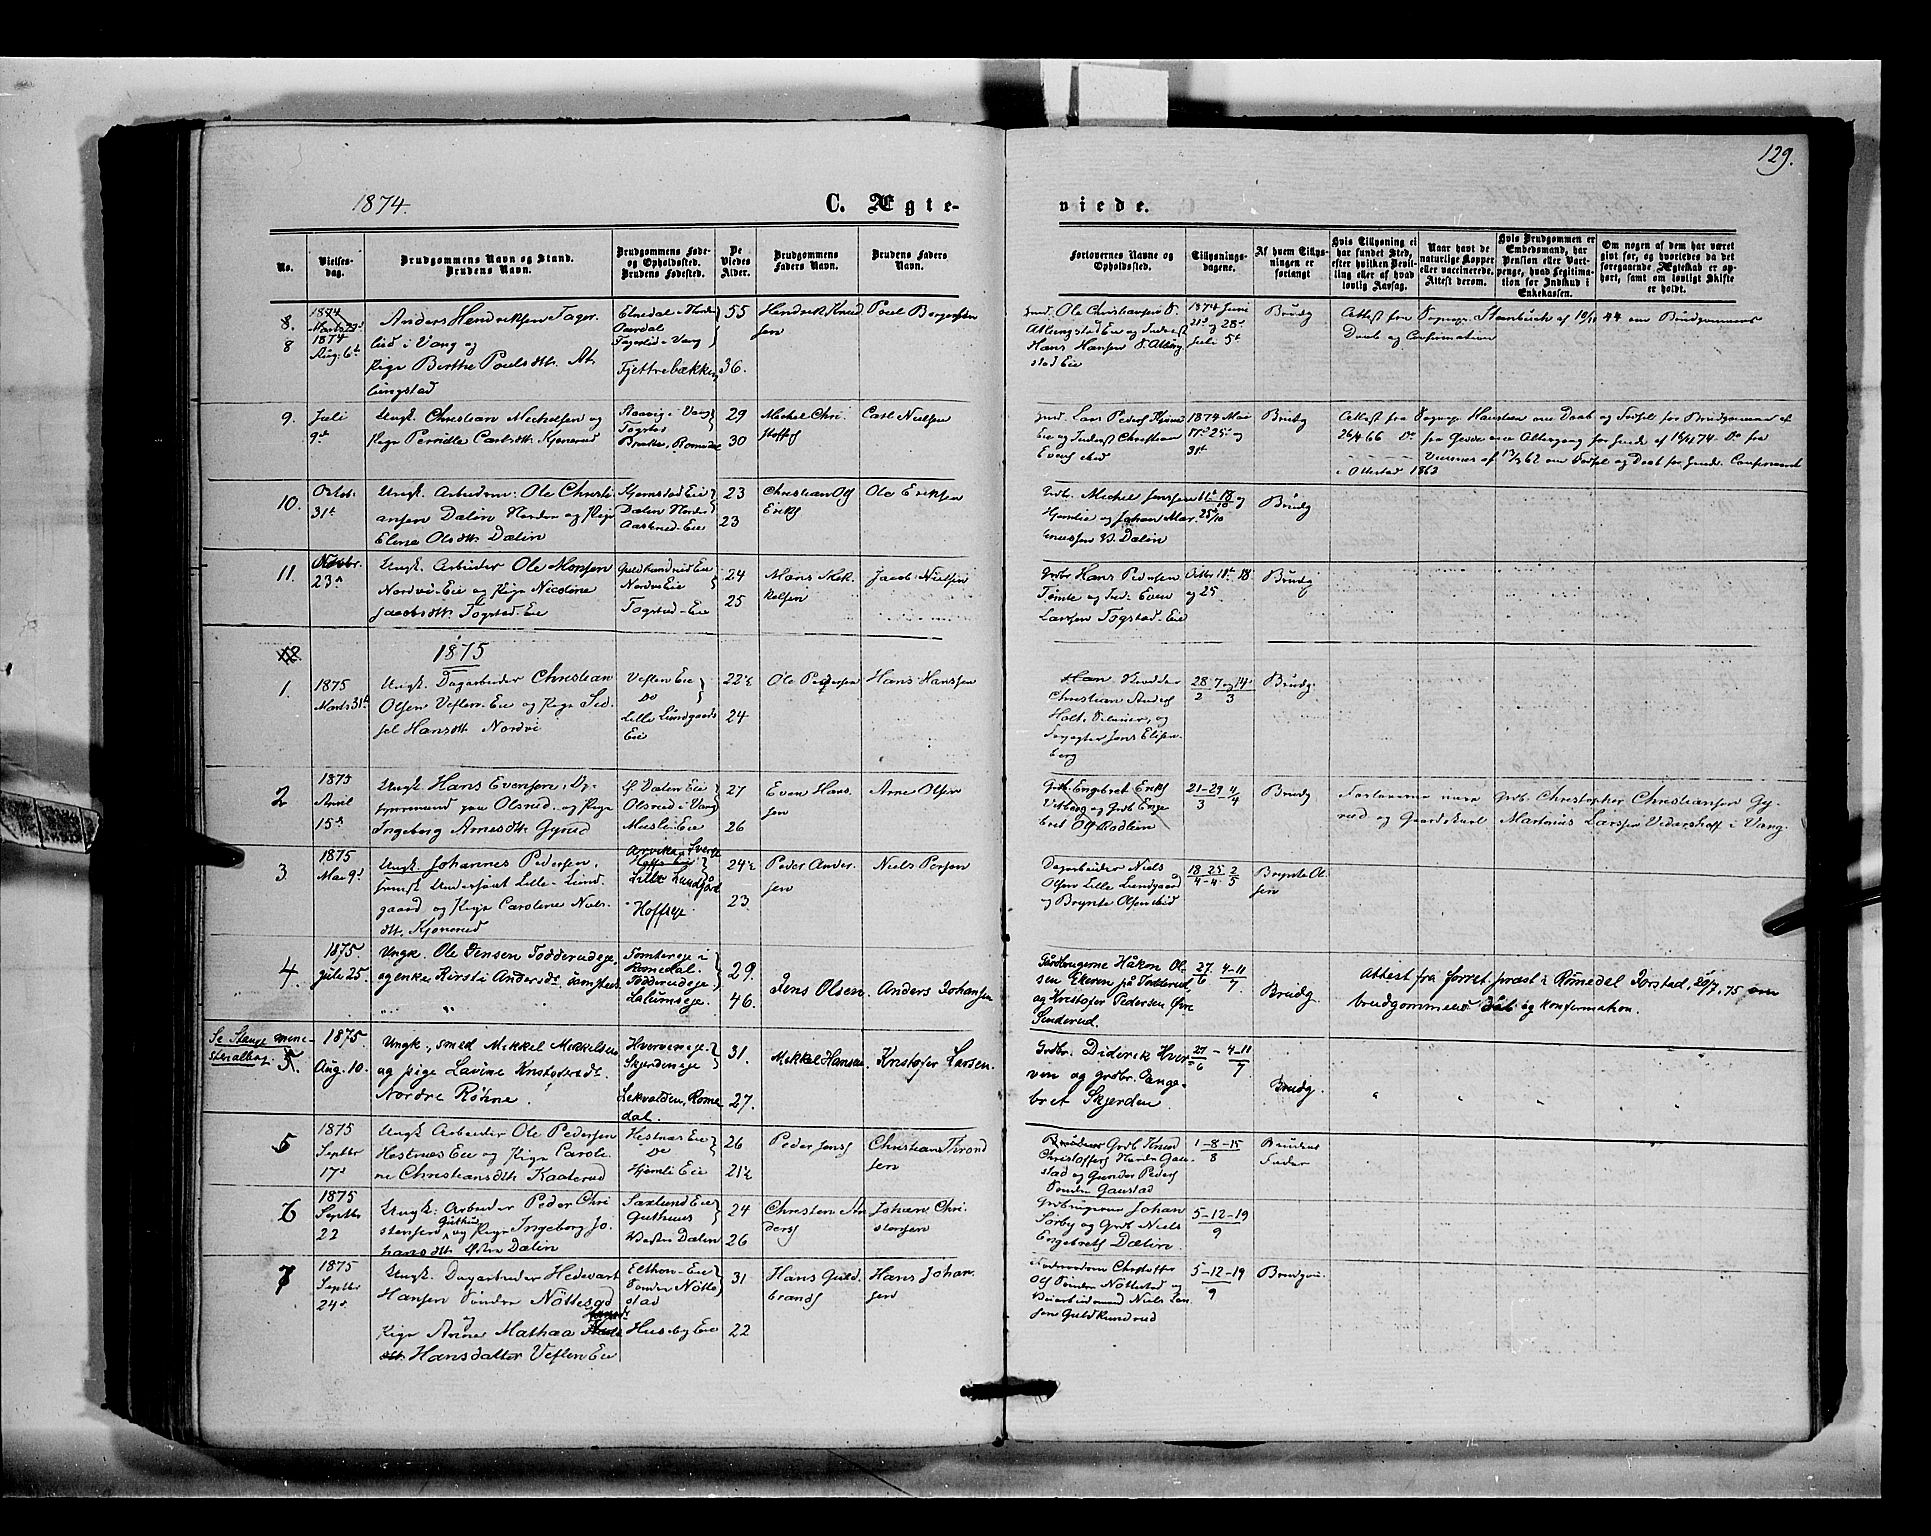 129.
1874.
C. Ægte-
viede.
No.
Vielses-
dag.
Brudgommens Navn og Stand.
Brudens Navn.
Brudgommens Føde-
og Opholdssted.
Brudens Fødested.
De
Viedes
Alder.
Brudgommens
Faders Navn.
Brudens Faders
Navn.
Forlovernes Navne og
Opholdssted.
Tillysnings-
dagene.
Af hvem Tillys-
ningen er
forlangt
Hvis Tillysning ei
har fundet Sted,
efter hvilken Bevil-
ling eller af hvad
lovlig Aarsag.
Naar havt de
naturlige Kopper
eller vaccinerede.
Attest derom.
Hvis Brudgommen er
Embedsmand, har
Pension eller Vart-
penge, hvad Legitima-
tion for Indskud i
Enkekassen.
Om nogen af dem har været
givt før, og hvorledes da det
foregaaende Ægteskab er op-
hørt, samt om lovligt Skifte
er holdt.
8.
8
1874
1874
Aug. 6te
Anders Hendriksen Fager-
lid i Vang og
Pige Berthe Poulsdtr. At-
lungstad
Fagerlid i Vang
Fjettrebækken
55
36.
Hendrik Knud
sen
Poul Borgersen
Ole Christiansen
Hans Hansen
stad Eie
1874 Juni
21de og 28de
Juli 5te
Brudg
Attest fra Sognepr. Stenbuck af 44 om Brudgommens
Daab og Confirmation
9.
Juli
9de
Ungk. Christian Mechelsen og
Pige Pernille Carlsdtr. Kjonerud
i Vang
Togstad
Romedal
29
30
Michel Chri
stoffs
Carl Nielsen
Lars Peders
Eie og Inderst Christian
Evens
1874 Mai
17de 25de og
31te
Brudg
Attest fra Sognepr. om Daab og Fødsel for Brudgommen af
26/4 66 Do fra om Altergang for Bruden af 74 - Do fra
af 62 om Fødsel og Daab for Bruden. Confirmeret
i Ottestad 1863
10.
Octob.
31te
Ungk. Arbeider Ole Christi
ansen Dælin Nordre og Pige
Eline Olsdtr. Dælin
Gjemstad Eie
Dælin Nordre
Aasterud Eie
23
23
Christian Ols
Eriks
Ole Eriksen
Grdb. Michel Jenssen
Hjemlie og Johan Mar-
enussen V. Dælin
11te 18 og
25/10
Brudg
11.
Novbr.
23de
Ungk. Arbeider Ole Monsen
Nordvi-Eie og Pige Nicoline
Jacobsdtr. Togstad-Eie
Guldkundrud Eie
Nordvi Eie
Togstad-Eie
24
25
Mons Mek
kelsen
Jacob Nielsen
Grdbr Hans Pedersen
Tømte og Ind. Even
Larssen Togstad-Eie
Octbr 11te 18
og 25.
Brudg
1875
1.
1875
Marts 31te
Ungk. Dagarbeider Christian
Olsen Veflen-Eie og Pige Sid-
sel Hansdtr. Nordvi
Veflen Eie
Do
Lille Lundgaards
Eie
22½
24
Ole Pedersen
Hans Hanssen
Christian Anders
Holt, og
Jens Elisen-
berg
28/2 7 og 14/3
Brudg.
2
1875
April
15de
Ungk. Hans Evensen, By
paa Olsrud og Pige
Ingeborg Arnesdtr. Gyrud
Dælin Eie
Olsrud i Vang
Muslie Eie
27
26
Even Hans
sen
Arne Olsen
Grdb. Engebret Eriks
Vitberg og Grdb. Enge
bret Ols Rødlein
21-29/3 4/4
Brudg
Forloverne vare Grdb. Christopher Christiansen Gy-
rud og Gaardskarl Martinus Larssen Vidarshoff i Vang
3
1875
Mai 9de
Ungk. Johannes Pedersen,
svensk Undersaat Lille-Lund-
gaard og Pige Caroline Niels-
dtr. Kjonerud
Arvika i Sverge
Lille Lundgård
Hoffseje
24½
23.
Peder Ander
sen
Niels Persen
Dagarbeider Niels
Olsen Lille Lundgaard
og Brynte Olsen
18/4 25/4 2/5
Brynte Ol
sen
4
1875.
Juli 25.
Ungk. Ole Jensen Todderudeje
og enke Kirsti Andersdr. Lamstad.
" "
Tomtereje i
Romedal.
Todderudeje
Lalumseje.
29.
46.
Jens Olsen
Anders Johansen
Gårdbrugerne Håkon Ol-
sen Ekeren på Todderud
og Kristofer Pedersen Øvre
Sinderud.
27/6 4-11/7
Brudg.
Attest fra forret. præst i Romedal Torstad, 20/7, 75 om
brudgommens dåb og konfirmation.
Se Stange mini-
sterialbog.
5.
1875.
Aug. 10.
Ungk., smed Mikkel Mikkelsen
og pige Lavine Kristofersdr.
Nordre Røhne.
Hverveneje.
Skjerdeneje
Lekvolden, Rome
dal.
31.
27.
Mikkel Hansen
Kristofer Larsen.
Grdbr. Diderik Hver
ven og grdbr. Enge-
bret Skjerden.
27/6 - 4-11/7
Brudg.
5
1875
Septbr
17de
Ungk Arbeider Ole Pedersen
Hestnæs Eie og Pige Caroli
ne Christiansdtr Kaaterud
Hestnæs Eie
Do
Hjemli Eie
26
21½
Peder Jens
Christian Thrond
sen
Grdb. Knud
Christoffers Nordre Gau-
stad og Gunder Peders
Søndre Gaustad
1-8-15/8
Brudens
Fader
6
1875
Septbr
22
Ungk. Arbeider Peder Chri
stensen Guthus og Pige Ingeborg Jo-
hansdtr Østre Dælin
Saxlund Eie
Guthuus
Vestre Dælin
24
26
Christen An
ders
Johan Chri
stensen
Grdbrugerne Johan
Sørby og Grdb Niels
Engebrets Dælin.
5-12-19/9
7
1875
Septbr
24de
Ungk. Dagarbeider Hedevart
Hansen Søndre Nøttestad
og
Pige Anne Mathea
Hansdatter Veflen Eie
Ellhon-Eie
Søndre Nøtte
stad
Husby Eie
31
22
Hans Guld-
brands
Hans Johan
sen
Christoffer
Ols Søndre Nøttestad og
Niels Lar
sen Guldkundrud
5-12-19/9
Brudgom.